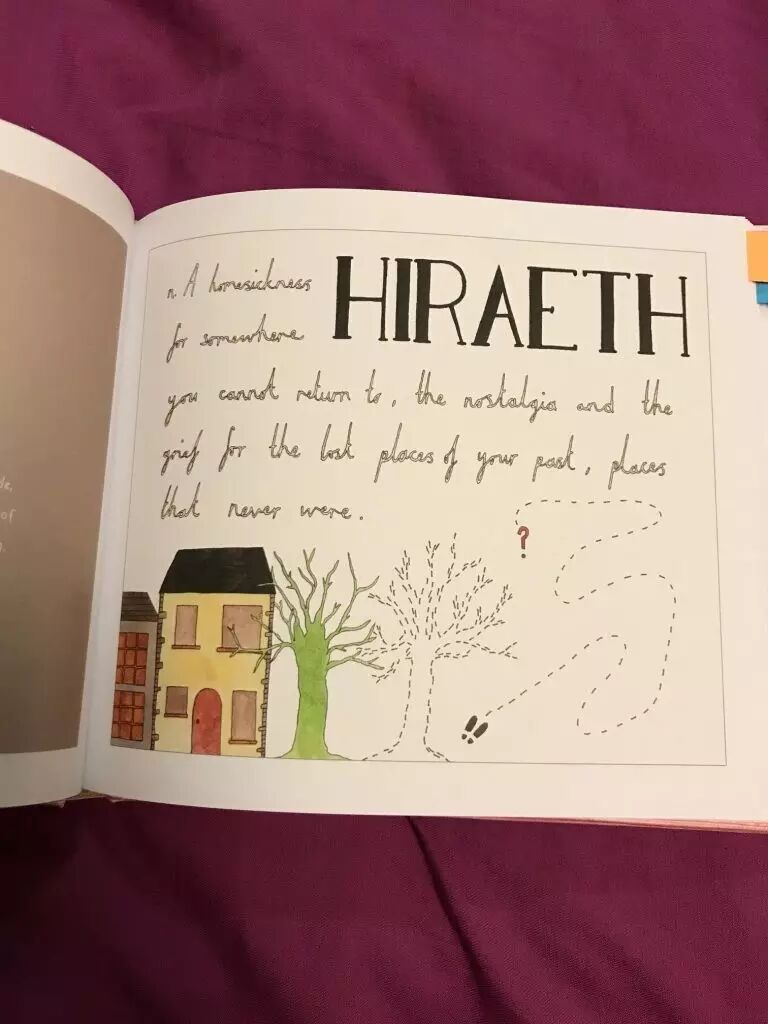 HIRAETH
n. A homesickness
for somewhere
you cannot return to, the nostalgia and the
grief for the lost places of your past, places
that never were.
?
of